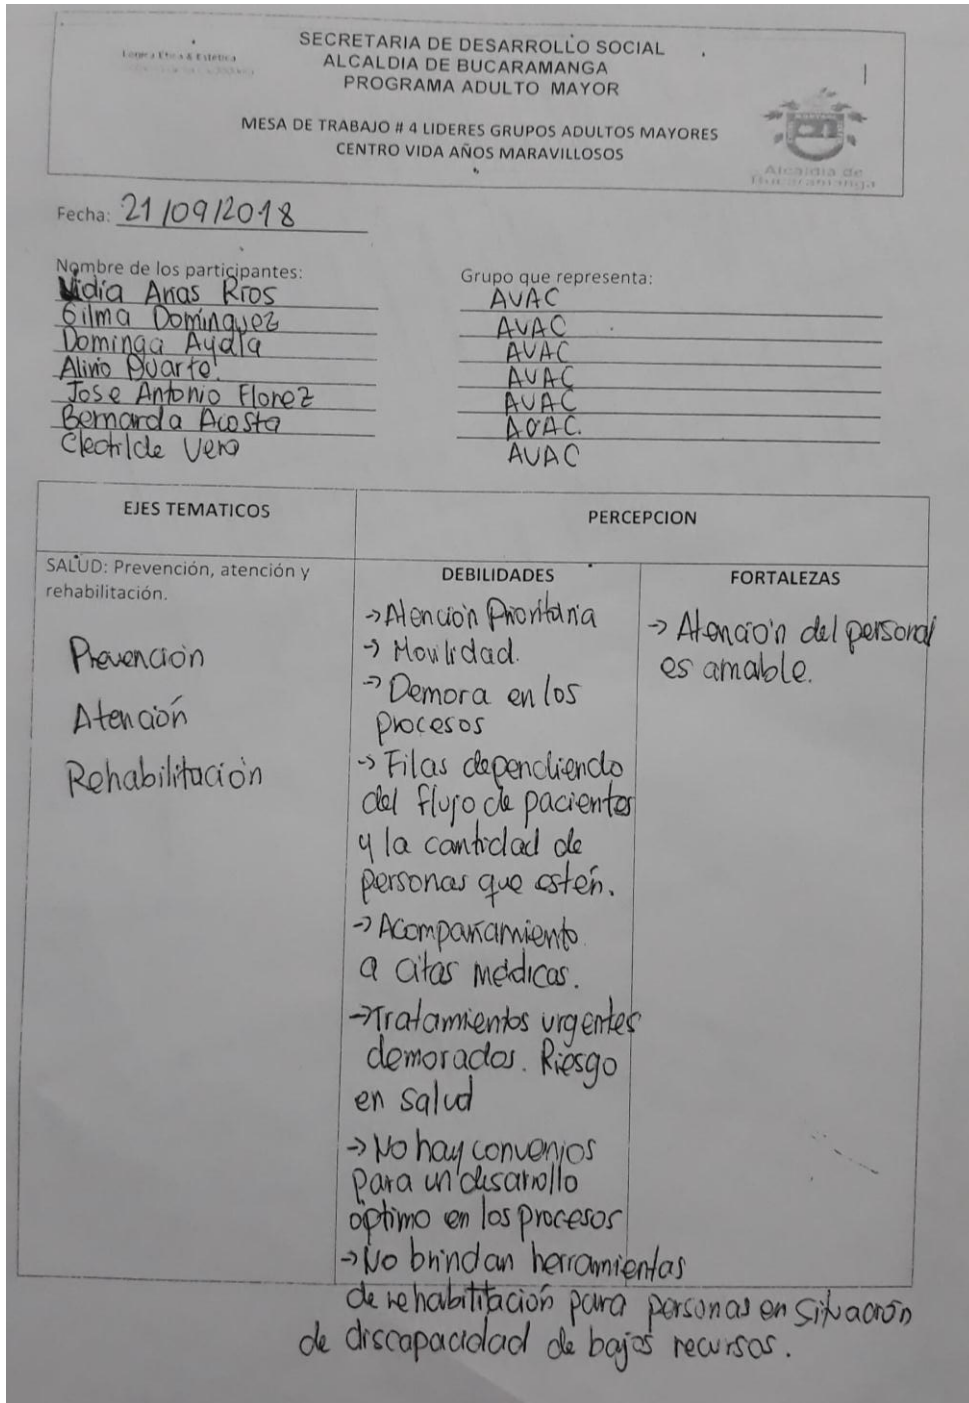 Lógica Ética & Estética
SECRETARIA DE DESARROLLO SOCIAL
ALCALDIA DE BUCARAMANGA
PROGRAMA ADULTO MAYOR
MESA DE TRABAJO # 4 LIDERES GRUPOS ADULTOS MAYORES
CENTRO VIDA AÑOS MARAVILLOSOS
Alcaldía de
Bucaramanga
Fecha: 21/09/2018
Nombre de los participantes: Grupo que representa:
Arias Ríos AVAC
Gilma Domínguez AVAC
Dominga Ayala AVAC
Alirio Duarte AVAC
Jose Antonio Florez AVAC
Bernarda Acosta AVAC.
Clectilde Vera AVAC
EJES TEMATICOS PERCEPCION
SALUD: Prevención, atención y
rehabilitación.
Prevención
Atención
Rehabilitación
DEBILIDADES
→ Atención Prioritaria
→ Movilidad.
→ Demora en los
procesos
→ Filas dependiendo
del flujo de pacientes
y la cantidad de
personas que estén.
→ Acompañamiento
a citas médicas.
→ Tratamientos urgentes
demorados. Riesgo
en salud
→ No hay convenios
para un desarrollo
óptimo en los procesos
→ No brindan herramientas
de rehabilitación para personas en situación
de discapacidad de bajos recursos.
FORTALEZAS
→ Atención del personal
es amable.